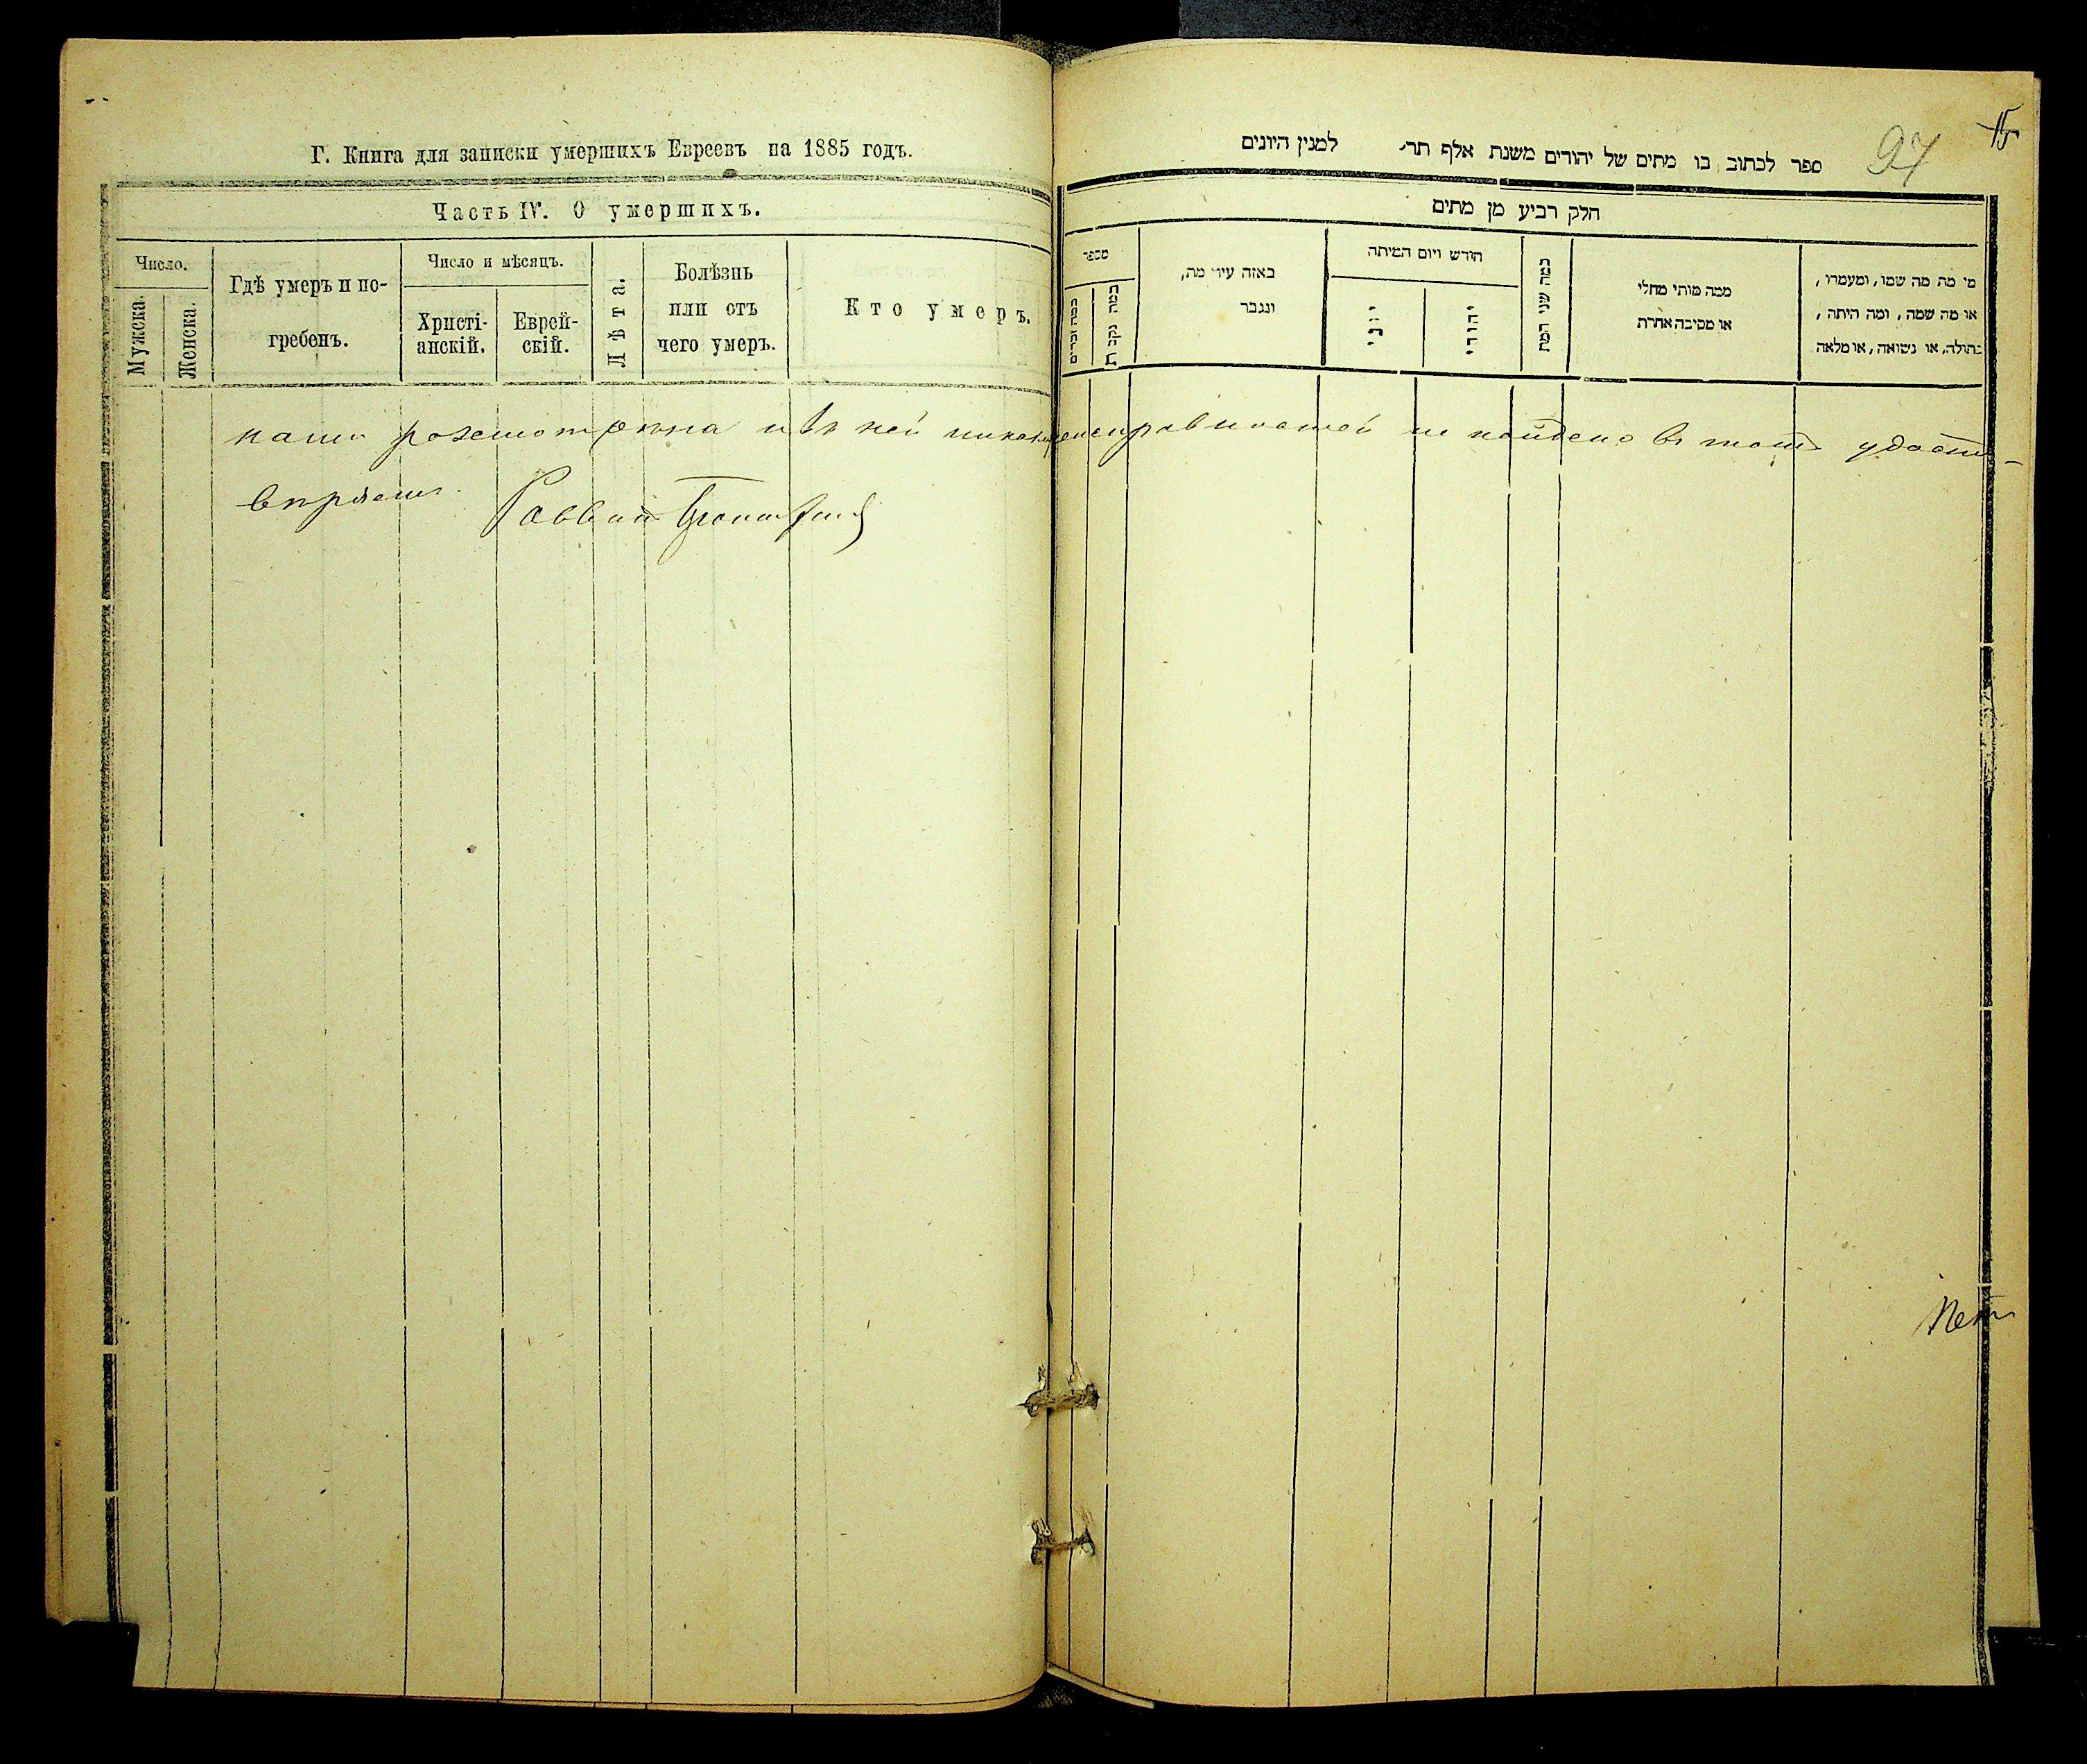 Г. Книга для записки умершихъ Евреевъ на 1885 годъ.
Часть IV. О умершихъ.
Число.
Мужска.
Женска.
Гдѣ умеръ и по-
гребенъ.
Число и мѣсяцъ.
Христі-
анскій.
Еврей-
скій.
Лѣта.
Болѣзнь
или отъ
чего умеръ.
Кто умеръ.
нами розсмотрѣна и въ ней никакихъ неисправностей не найдено въ томъ удосто-
вѣряемъ.
Раввинъ
ספר לכתוב בו מתים של יהודים משנת אלף תר׳ למנין היונים
97
15
חלק רביע מן מתים
מספר
כמה זכרים
כמה נקבות
באזה עיר מת,
ונגבר
חודש ויום המיתה
יוני
יהודי
כמה שני המת
ממה מותי מחלי
או מסיבה אחרת
מי מת מה שמו, ומעמדו,
או מה שמה, ומה היתה,
בתולה, או נשואה, או מלאה